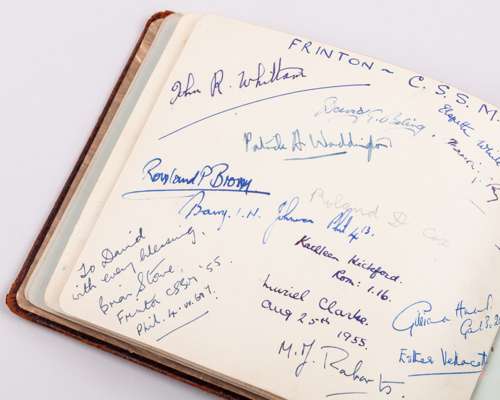 FRINTON ~ C.S.S.M.
John R. Whittam
Patrick A Waddington
Rowland P Brown
Barry. I. N. Johnson Phil 4 13.
Roland D
To David
with every blessing,
Brian Stone.
Frinton CSSM '55.
Phil. 4. vv. 6 & 7.
Kathleen Hickford.
Rom: 1.16.
Muriel Clarke.
Aug 25th 1955.
M. J. Roberts
Gillian
Esther